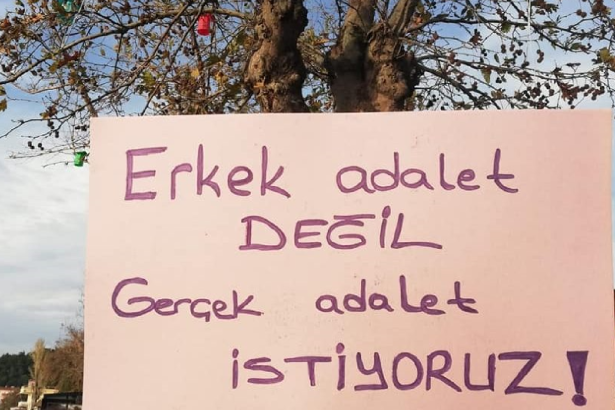 Erkek adalet
DEĞİL
Gerçek adalet
iSTİYORUZ!